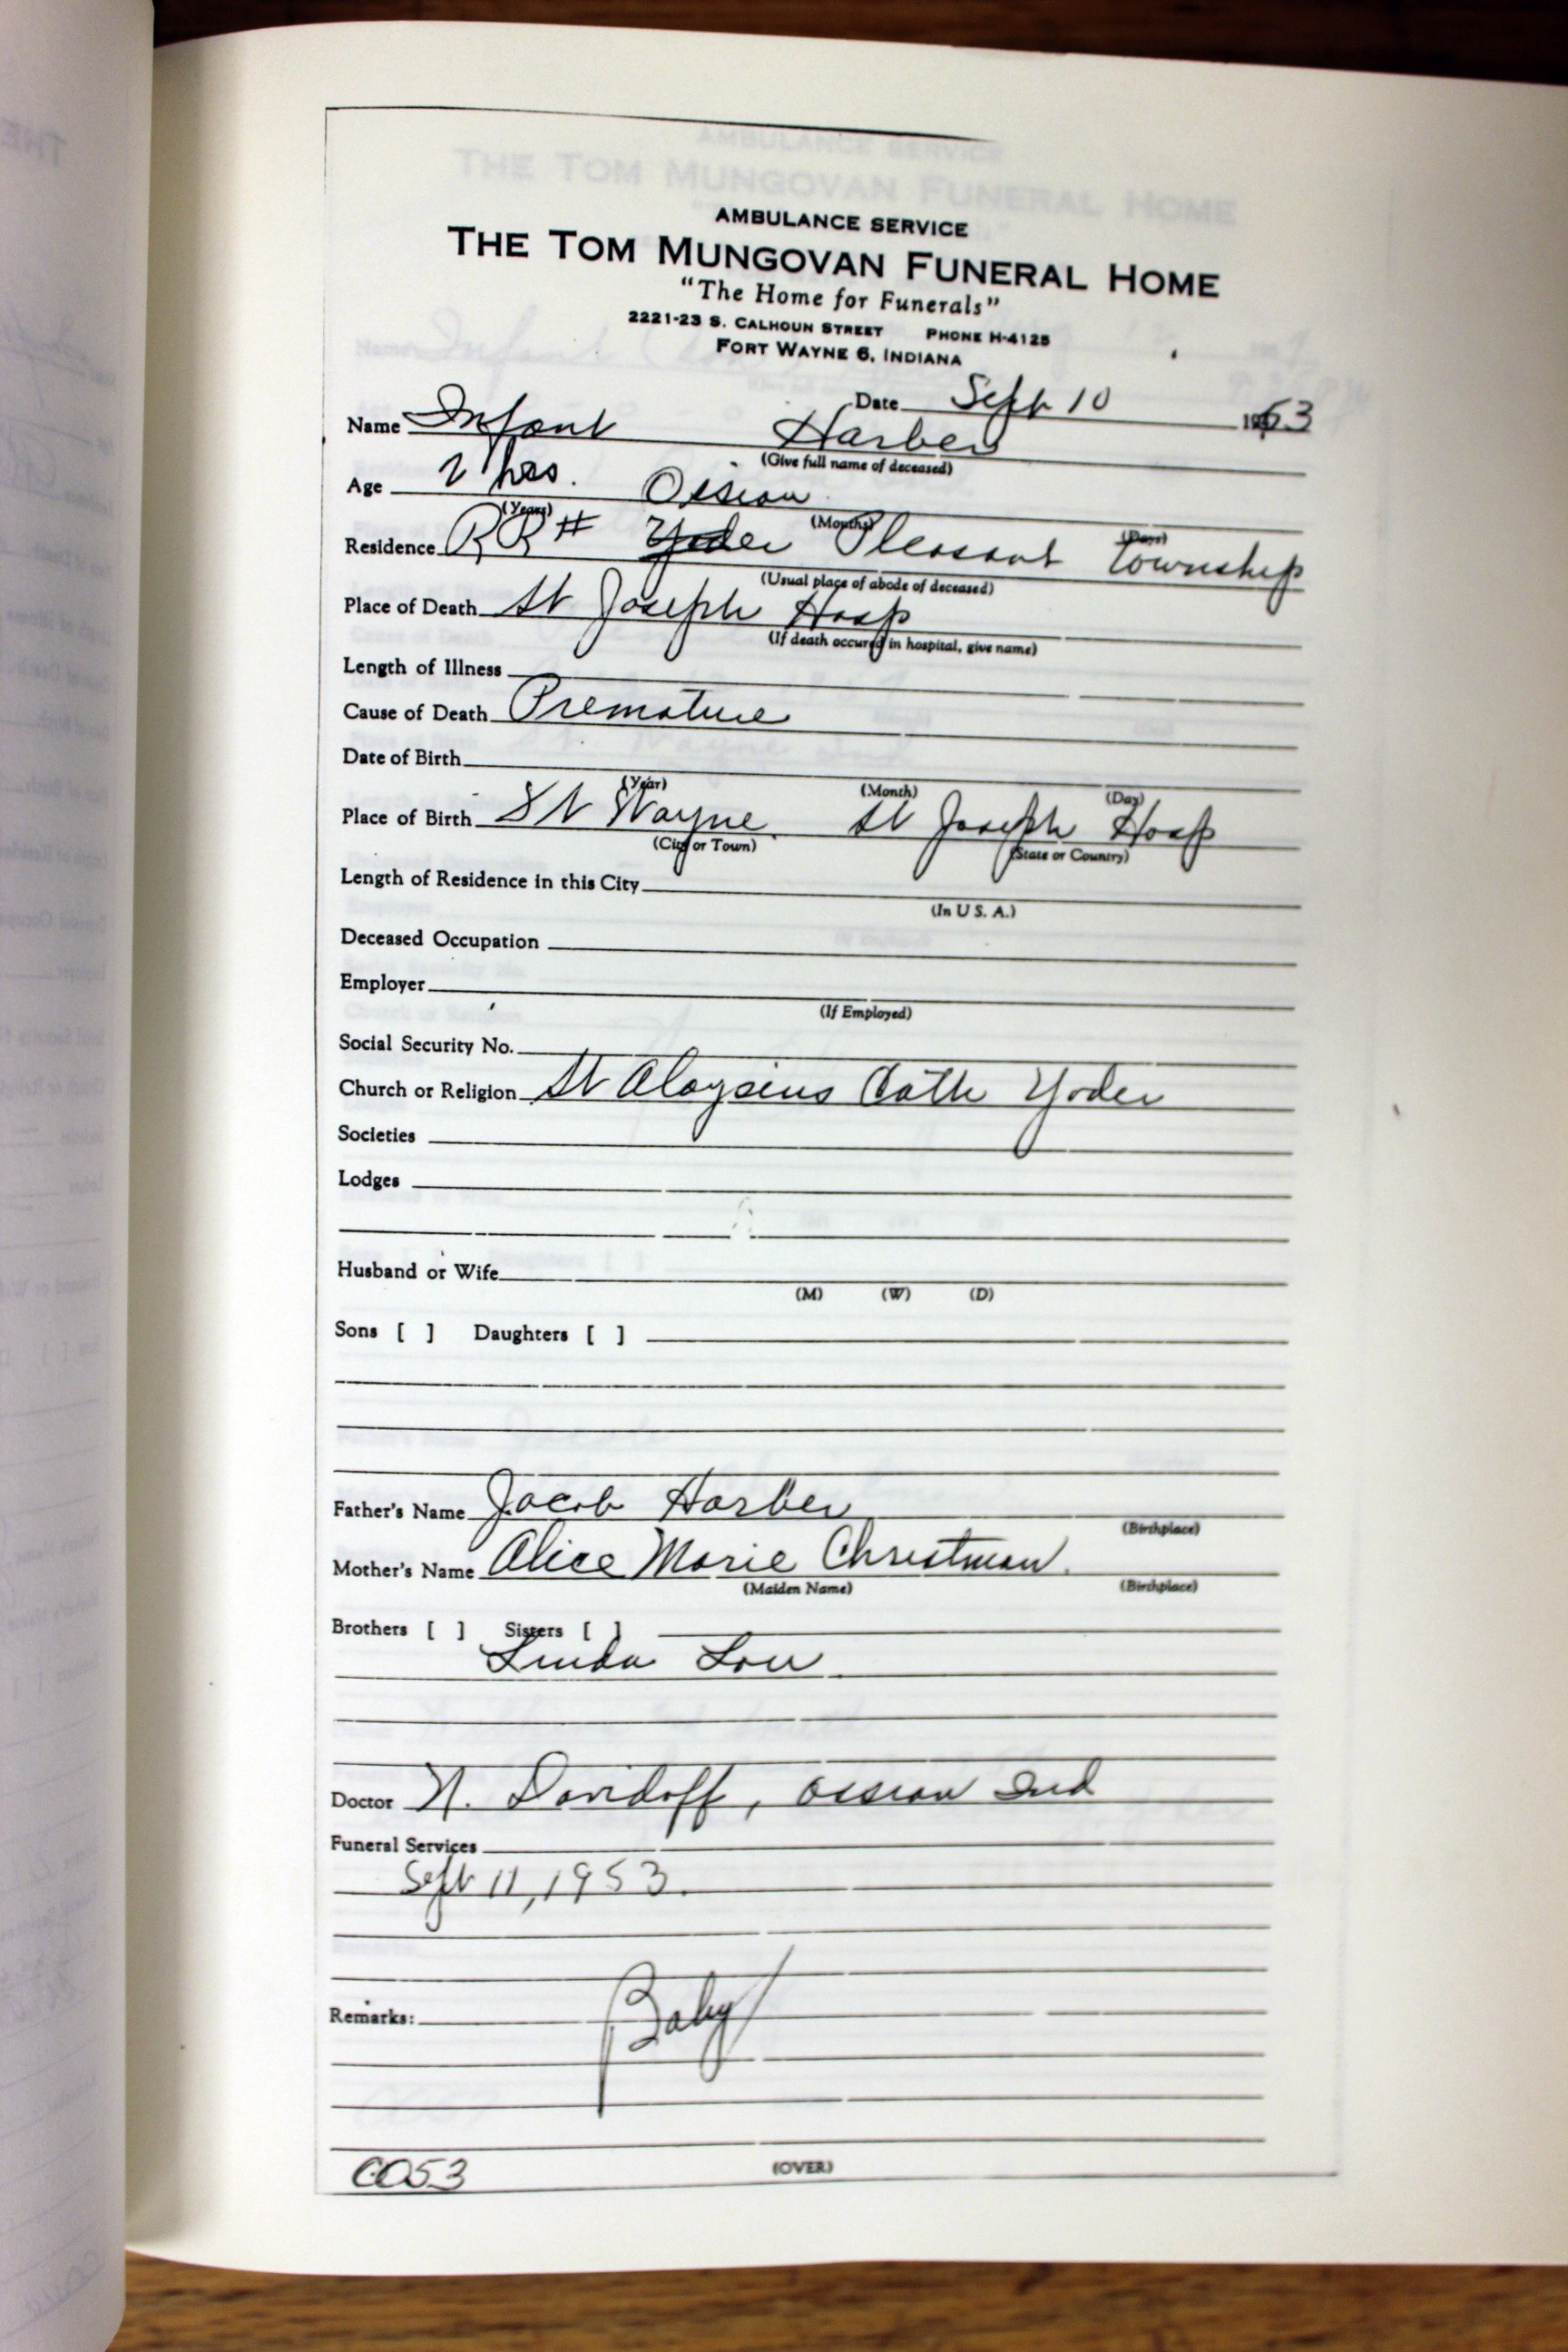 AMBULANCE SERVICE
THE TOM MUNGOVAN FUNERAL HOME
"The Home for Funerals"
2221-23 S. CALHOUN STREET PHONE H-4125
FORT WAYNE 6, INDIANA
Date Sept 10 1953
Name Infant Harber
(Give full name of deceased)
Age 2 hrs. Ossian
(Years) (Months) (Days)
Residence RR# Yoder Pleasant Township
(Usual place of abode of deceased)
Place of Death St Joseph Hosp
(If death occured in hospital, give name)
Length of Illness
Cause of Death Premature
Date of Birth
(Year) (Month) (Day)
Place of Birth Ft Wayne. St Joseph Hosp
(City or Town) (State or Country)
Length of Residence in this City
(In U S. A.)
Deceased Occupation
Employer
(If Employed)
Social Security No.
Church or Religion St Aloysius Cath Yoder
Societies
Lodges
Husband or Wife
(M) (W) (D)
Sons [ ] Daughters [ ]
Father's Name Jacob Harber
(Birthplace)
Mother's Name Alice Marie Christman.
(Maiden Name) (Birthplace)
Brothers [ ] Sisters [ ]
Linda Lou
Doctor N. Davidoff, Ossian Ind
Funeral Services
Sept 11, 1953.
Remarks: Baby
(OVER)
CO53